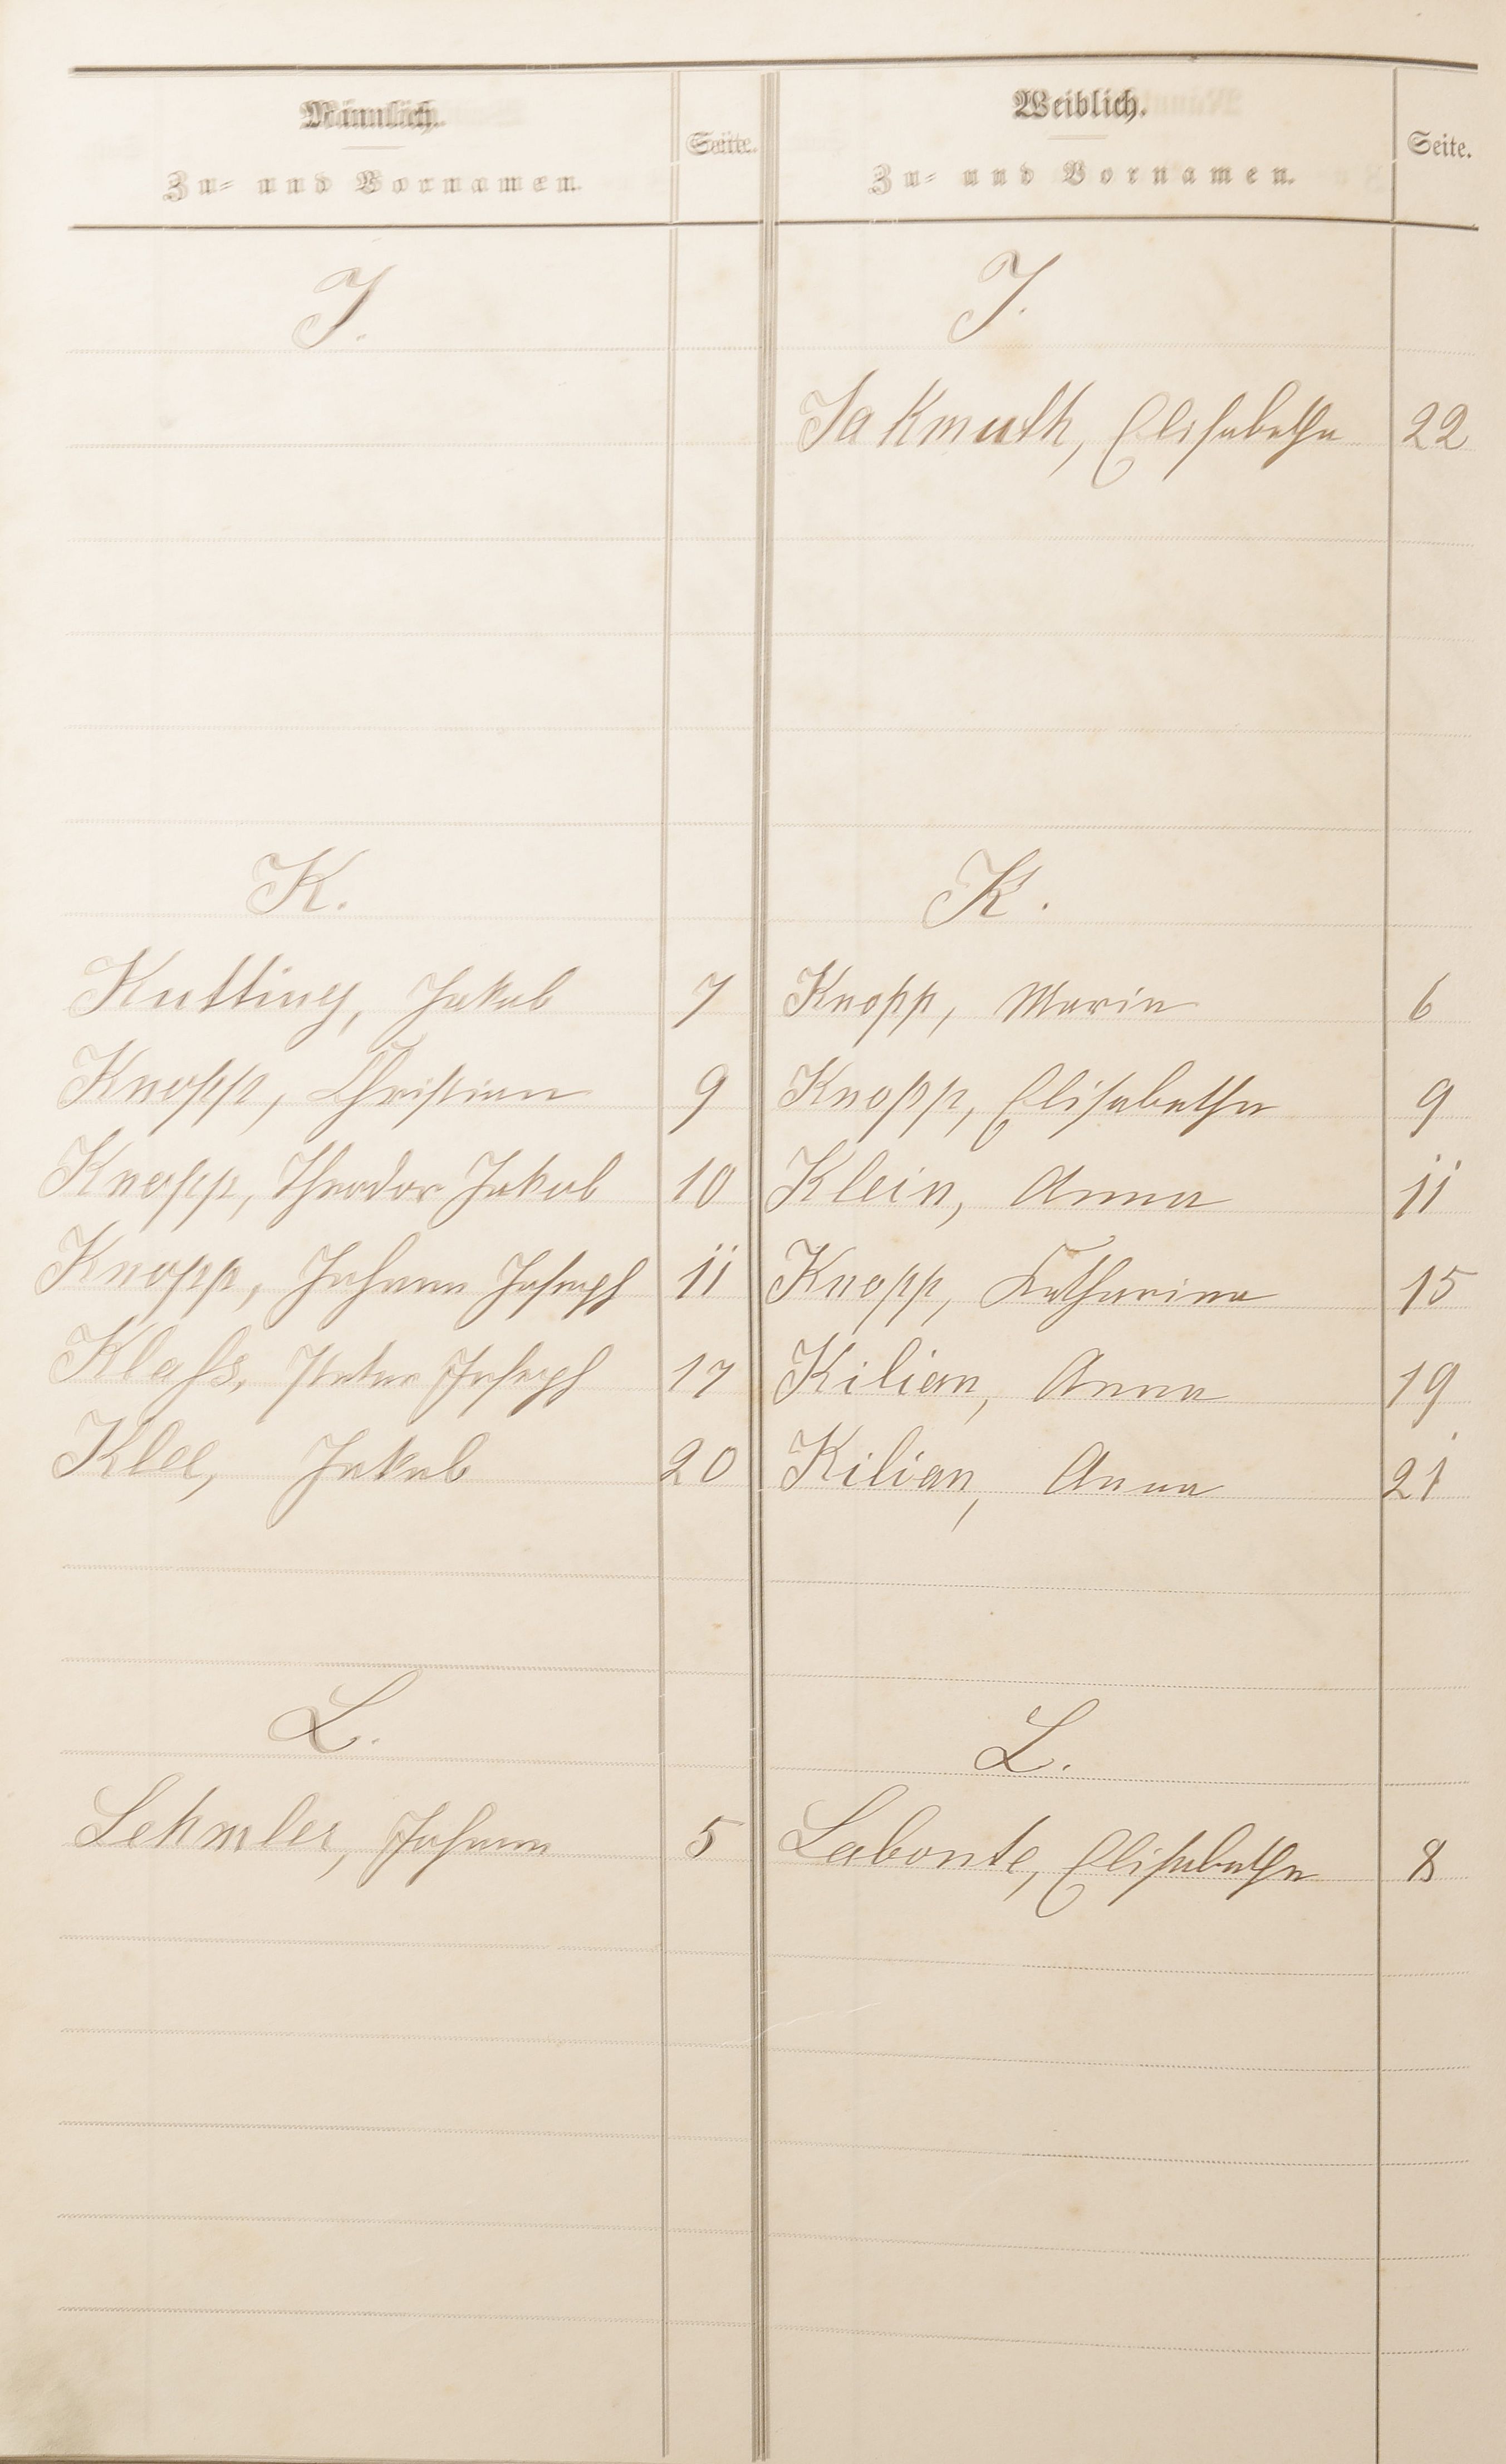 Männlich.
Zu- und Vornamen.
Seite.
Weiblich.
Zu- und Vornamen.
Seite.
J.
J.
Jakmuth, Elisabetha 22
K.
K.
Kutting, Jakob 7
Knopp, Maria 6
Knopp, Christian 9
Knopp, Elisabetha 9
Knopp, Theodor Jakob 10
Klein, Anna 11
Knopp, Johann Joseph 11
Knopp, Katharina 15
Klaſs, Peter Joseph 17
Kilian, Anna 19
Klee, Jakob 20
Kilian, Anna 21
L.
L.
Lehmler, Johann 5
Labonte, Elisabetha 8